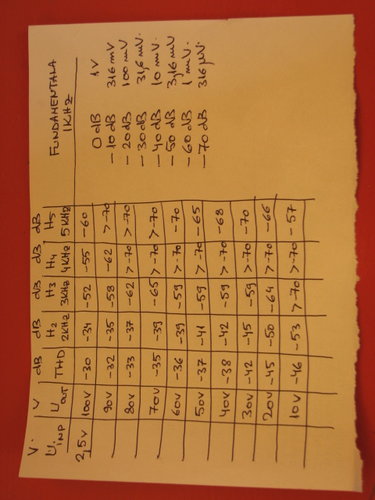 V. V dB dB dB dB dB
Uinp Uout THD H2 2KHz H3 3KHz H4 4KHz H5 5KHz
2,5V 100V -30 -34 -52 -55 -60
90V -32 -35 -58 -62 >-70
80V -33 -37 -62 >-70 >-70
70V -35 -39 -65 >-70 >-70
60V -36 -39 -59 >-70 -70
50V -37 -41 -59 >-70 -65
40V -38 -42 -59 >-70 -68
30V -42 -45 -59 >-70 -70
20V -45 -50 -64 >-70 -66
10V -46 -53 >-70 >-70 -57
FUNDAMENTALA
1KHz
0 dB 1V
-10 dB 316 mV
-20 dB 100 mV
-30 dB 31,6 mV.
-40 dB 10 mV.
-50 dB 3,16 mV
-60 dB 1 mV.
-70 dB 316 μV.